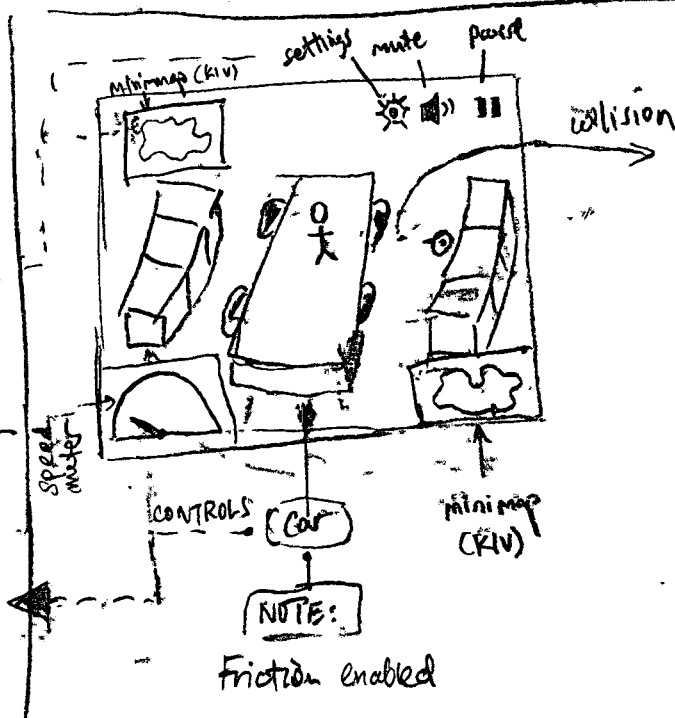 settings mute pause
minimap (KIV)
collision
speed
meter
CONTROLS
Car
minimap
(KIV)
NOTE:
Friction enabled